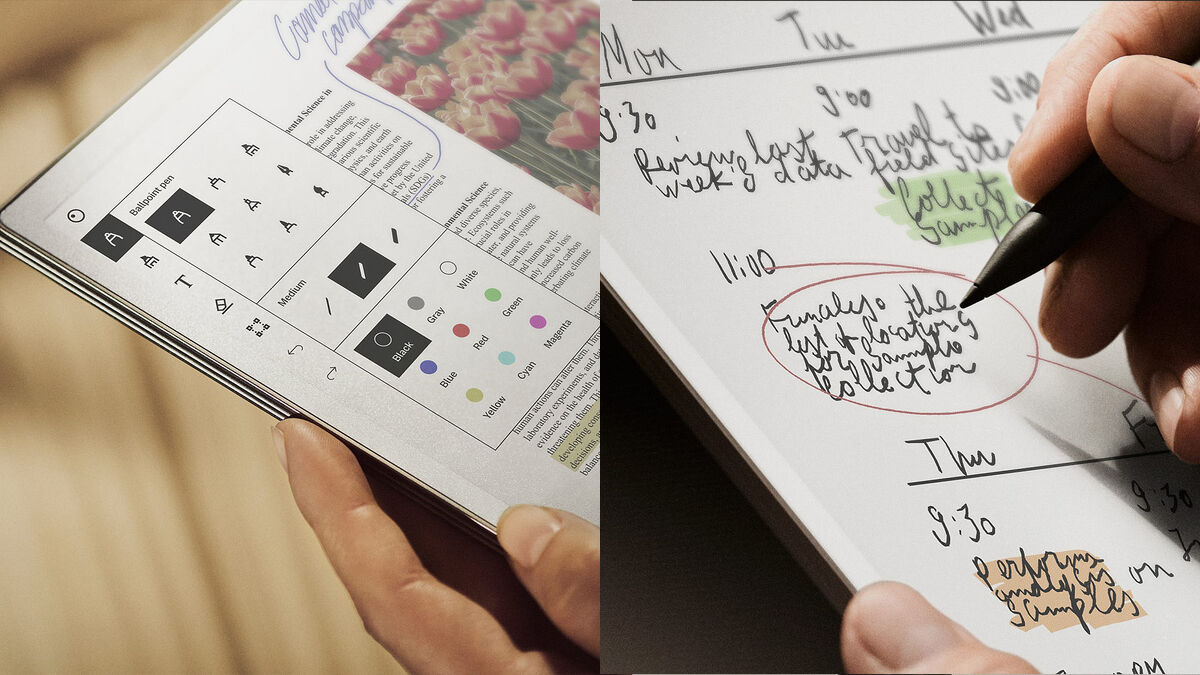 Ballpoint pen
T
Medium
Black
Gray
White
Blue
Red
Green
Yellow
Cyan
Magenta
mental Science in
role in addressing
imate change,
gradation. This
arious scientific
ysics, and earth
an activities on
s for sustainable
e progress
et by the United
als (SDGs)
e fostering a
nmental Science
d diverse species,
. Ecosystems such
rucial roles in
ater, and providing
natural systems
can have
und human well-
only leads to loss
increased carbon
rbating climate
human actions can alter them. Thr
laboratory experiments, and da
evidence on the health of
threatening them. Th
developing con
decisions, a
balanc
Mon Tue Wed
9:30 9:00 9:00
Reviewing last
week's data
to
field sites
Collect
samples
11:00
the
list of locations
for sample
collection
Thu
9:30
9:30
Perform
analysis on
samples